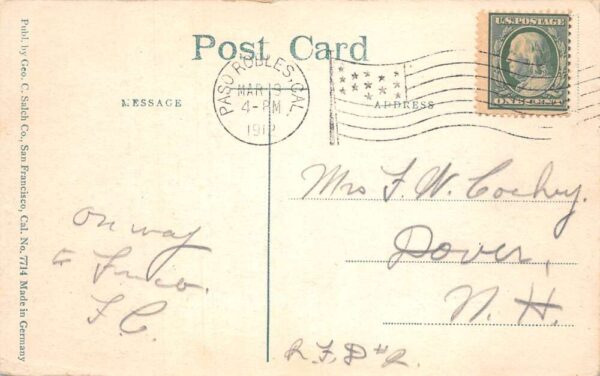 Publ. by Geo. C. Salch Co., San Francisco, Cal. No. 7714 Made in Germany
Post Card
MESSAGE
ADDRESS
U.S. POSTAGE
ONE CENT
PASO ROBLES, CAL.
MAR 13
4-PM
1912
On way
to Frisco.
F. C.
Mrs F. W.
Dover,
N. H.
R F D #2